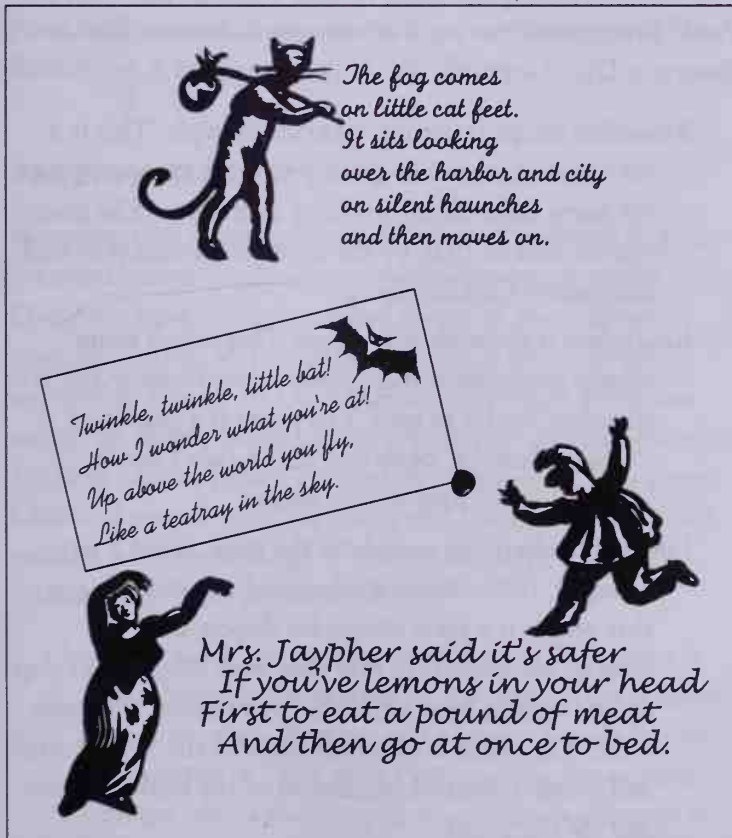 The fog comes
on little cat feet.
It sits looking
over the harbor and city
on silent haunches
and then moves on.
Twinkle, twinkle, little bat!
How I wonder what you're at!
Up above the world you fly,
Like a teatray in the sky.
Mrs. Jaypher said it's safer
If you've lemons in your head
First to eat a pound of meat
And then go at once to bed.